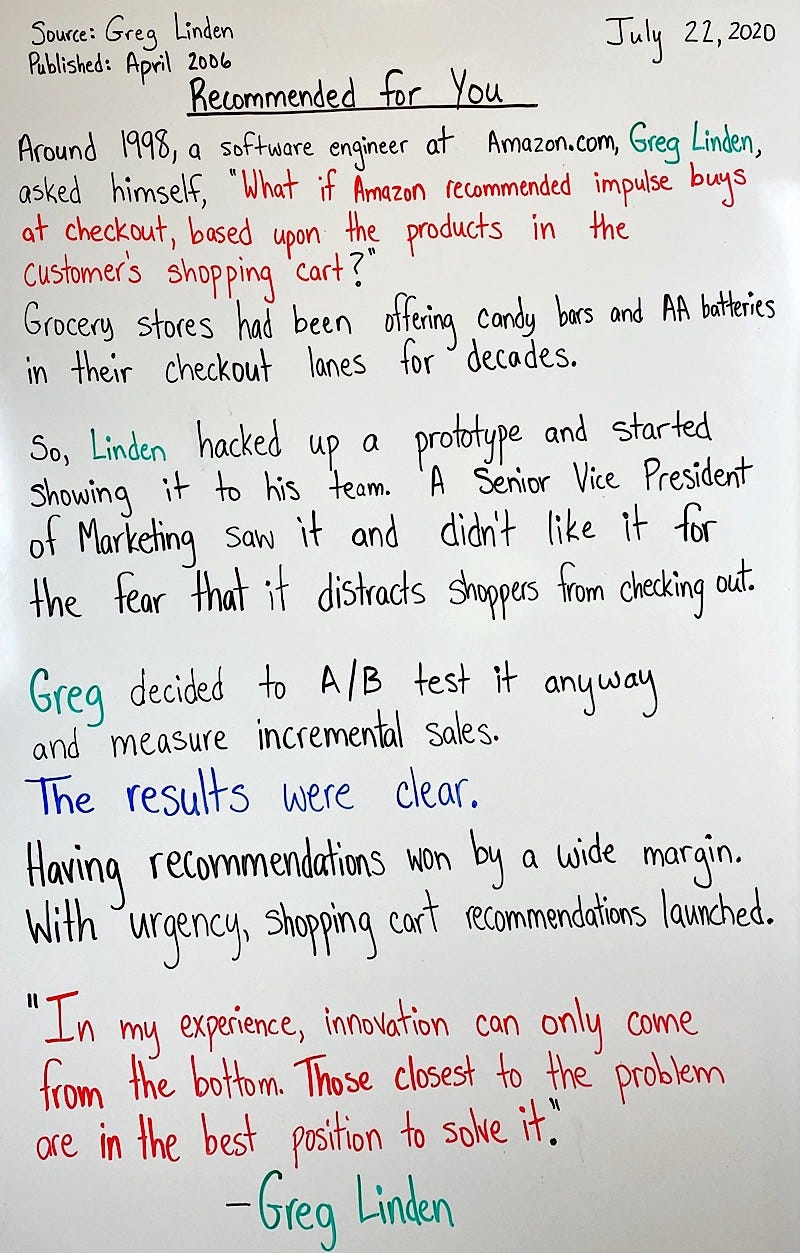 Source: Greg Linden
July 22, 2020
Published: April 2006
Recommended for You
Around 1998, a software engineer at Amazon.com, Greg Linden,
asked himself, "What if Amazon recommended impulse buys
at checkout, based upon the products in the
customer's shopping cart?"
Grocery stores had been offering candy bars and AA batteries
in their checkout lanes for decades.
So, Linden hacked up a prototype and started
showing it to his team. A Senior Vice President
of Marketing saw it and didn't like it for
the fear that it distracts shoppers from checking out.
Greg decided to A/B test it anyway
and measure incremental sales.
The results were clear.
Having recommendations won by a wide margin.
With urgency, shopping cart recommendations launched.
"In my experience, innovation can only come
from the bottom. Those closest to the problem
are in the best position to solve it."
- Greg Linden